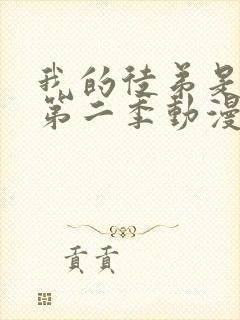 我的徒弟是
第二季動漫
貢貢